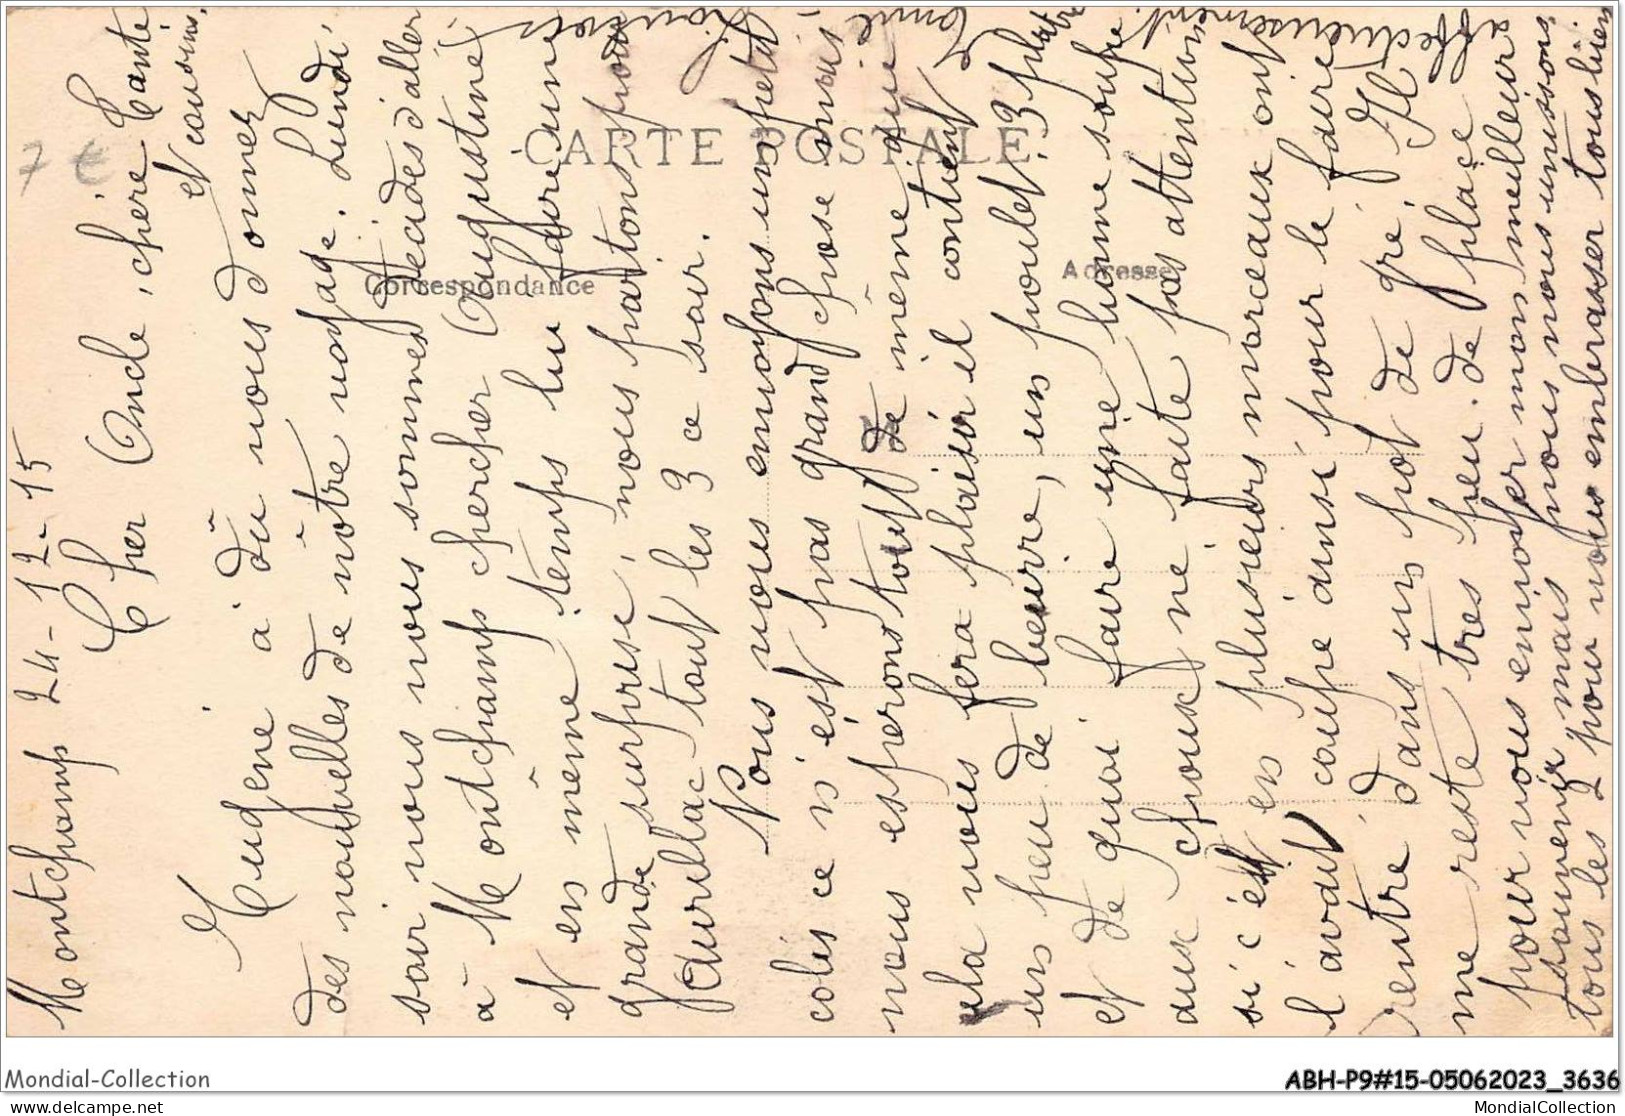 Montchamp 24-12-15
Cher Oncle, chère Tante
et cousins,
Eugène a dû vous donner
des nouvelles de nôtre voyage. Lundi
soir nous nous sommes décidés d'aller
à Montchamp chercher Augustine,
et en même temps lui faire une
grande surprise, nous partons pour
Aurillac tout les 3 ce soir.
Nous vous envoyons un petit
colis ce n'est pas grand chose mais
nous espérons tout de même que
cela vous fera plaisir il contient
un peu de beurre, un poulet 3
et de quoi faire une bonne soupe
aux choux ne faite pas attention
si c'est en plusieurs morceaux on
l'avait coupé ainsi pour le faire
rentré dans un pot de gré. Il
me reste très peu de place
pour vous envoyer mon meilleur
souvenir mais nous nous unissons
tous les 2 pour vous embrasser tous bien
affectueusement.
CARTE POSTALE
Correspondance
Adresse
M
7 €
Mondial-Collection
ABH-P9#15-05062023_3636
mondial-collection on delcampe.net
MondialCollection